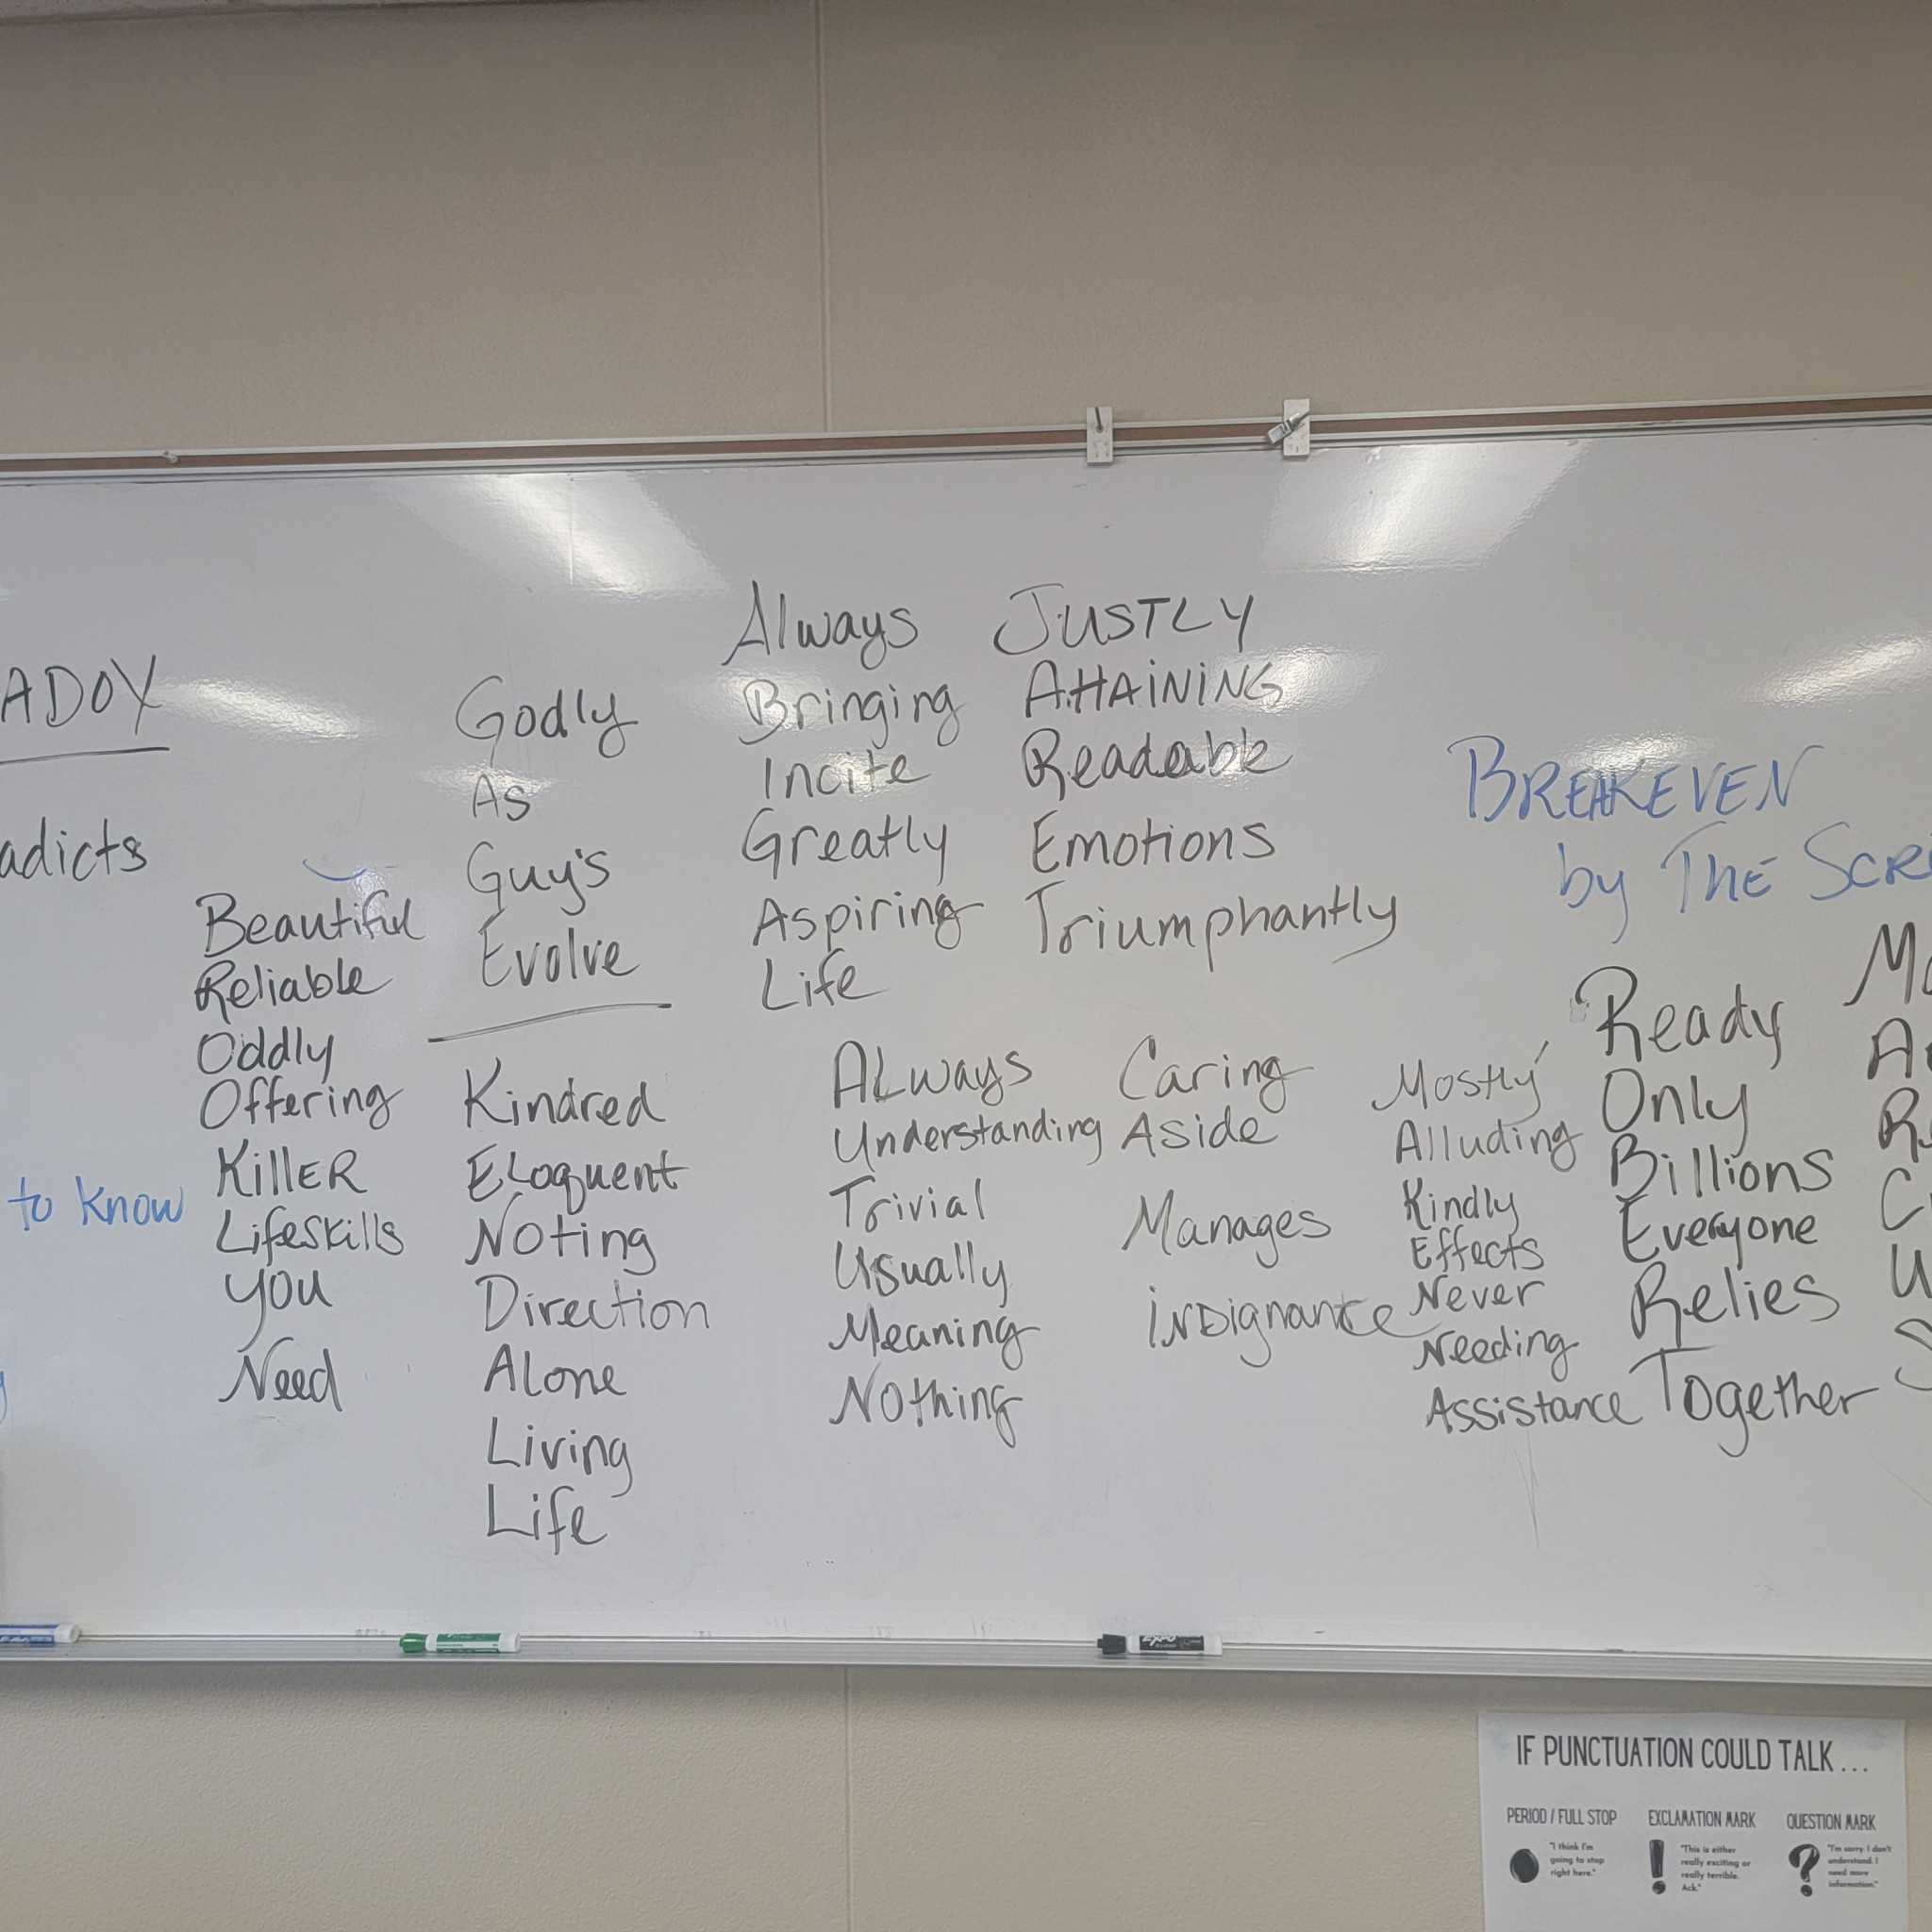 ADOX
adicts
to know
Beautiful
Reliable
Oddly
Offering
KillER
Lifeskills
you
Need
Godly
As
Guy's
Evolve
Kindred
Eloquent
Noting
Direction
Alone
Living
Life
Always
Bringing
Incite
Greatly
Aspiring
Life
JUSTLY
AttAiNiNG
Readable
Emotions
Triumphantly
ALways
Understanding
Trivial
Usually
Meaning
Nothing
Caring
Aside
Manages
iNDignance
BREAKEVEN
by THE SCR
Mostly
Alluding
Kindly
Effects
Never
Needing
Assistance
Ready
Only
Billions
Everyone
Relies
Together
IF PUNCTUATION COULD TALK...
PERIOD / FULL STOP
"I think I'm
going to stop
right here."
EXCLAMATION MARK
"This is either
really exciting or
really terrible.
Ack."
QUESTION MARK
"I'm sorry. I don't
understand. I
need more
information."
EXPO